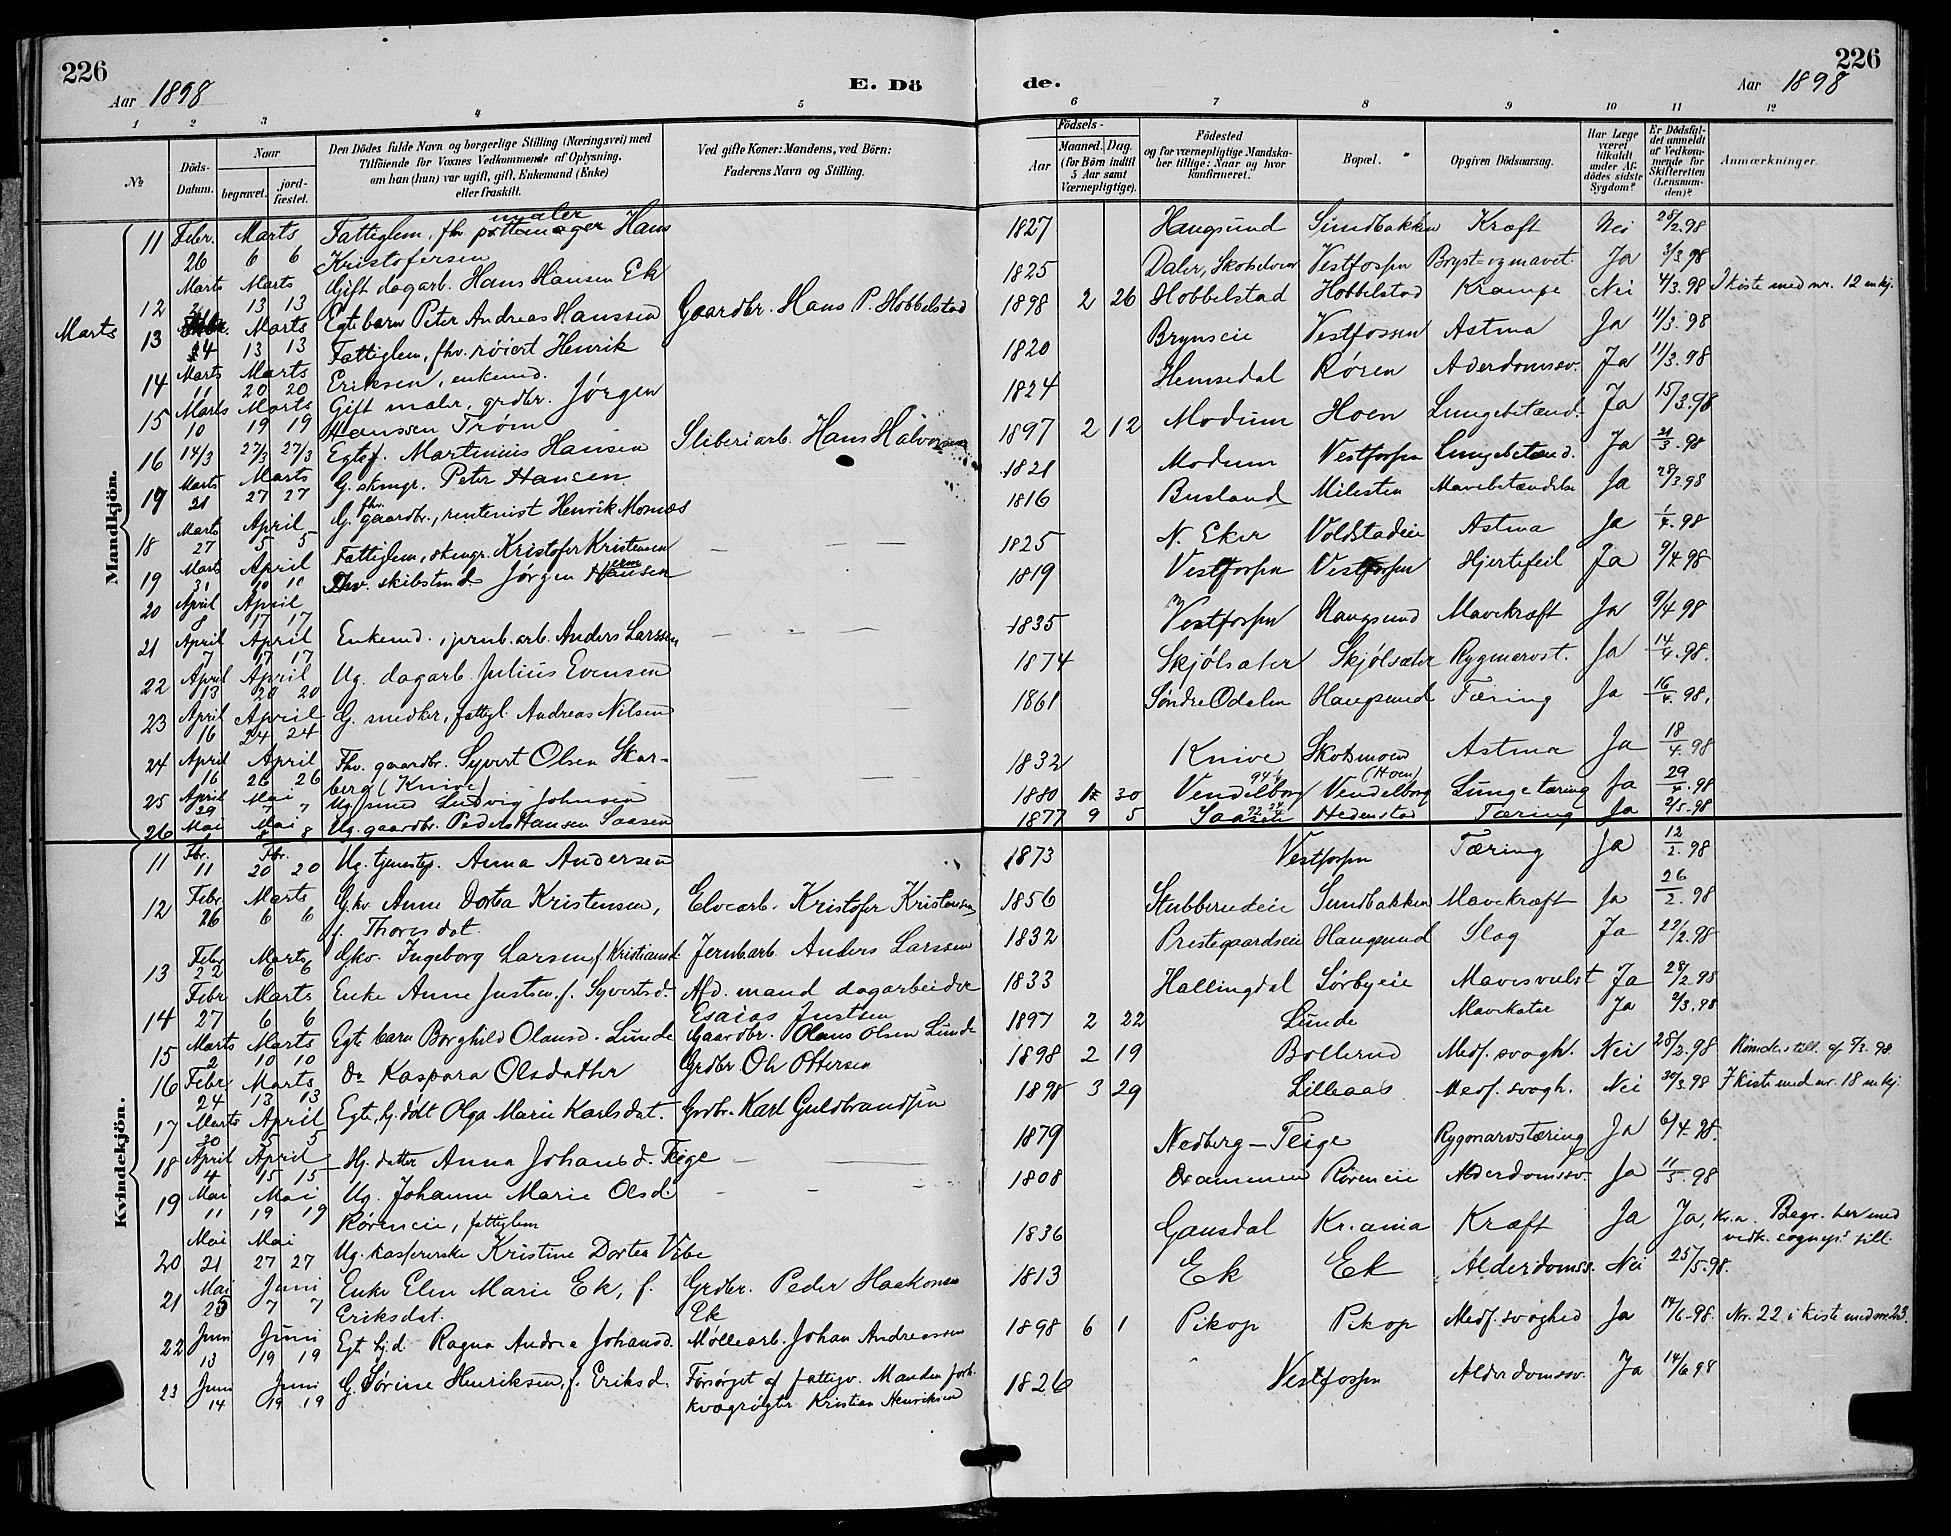 226
Aar 1898
E. Dö
de.
Aar 1898
226
1 2 3 4 5 6 7 8 9 10 11 12
No
Döds-Datum.
Naar
begravet.
jord-fæstet.
Den Dödes fulde Navn og borgerlige Stilling (Næringsvei) med
Tilföiende for Voxnes Vedkommende af Oplysning,
om han (hun) var ugift, gift, Enkemand (Enke)
eller fraskilt.
Ved gifte Koner: Mandens, ved Börn:
Faderens Navn og Stilling.
Födsels-
Aar
Maaned. Dag.
(for Börn indtil
5 Aar samt
Værnepligtige).
Födested
og for værnepligtige Mandska-
ber tillige: Naar og hvor
konfirmeret.
Bopæl.
Opgiven Dödsaarsag.
Har Læge
været
tilkaldt
under Af-
dödes sidste
Sygdom?
Er Dödsfal-
det anmeldt
af Vedkom-
mende for
Skifteretten
(Lensman-
den)?
Anmærkninger.
Mandkjön.
11 Febr. 26 Marts 6 6 Fattiglem, fhv. pottemager maler Hans Kristofersen 1827 Haugsund Sundbakken Kræft Nei 28/2.98
12 Marts Marts 13 13 Gift dagarb. Hans Hansen Ek 1825 Daler, Vestfossen Ja 3/3 98
Marts 13 4 Marts 13 13 Egte barn Peter Andreas Hanssen Gaardbr. Hans P. Hobbelstad 1898 2 26 Hobbelstad Hobbelstad Krampe Nei 4/3.98 I kiste med nr. 12 mkj.
14 Marts 11 Marts 20 20 Fattiglem, fhv. røiert Henrik Eriksen, enkemd. 1820 Brynseie Vestfossen Astma Ja 11/3.98
15 Marts 10 Marts 19 19 Gift maler, grdbr. Jørgen Hanssen Trøm 1824 Hemsedal Røren Aderdomssv. Ja 11/3.98
16 14/3 27/3 27/3 Egtef. Martinius Hansen Sliberiarb. Hans Halvorsen 1897 2 12 Modum Hoen Lungebetænd. Ja 15/3.98
19 Marts 21 Marts 27 27 G. skmgr. Peter Hansen 1821 Modum Vestfossen Lungebetænd. Ja 21/3.98
18 Marts 27 April 5 5 G. fhv. gaardbr., rentenist Henrik Mornæs 1816 Busland Milesten Mavebetændelse Ja 28/3.98
19 Marts 31 April 10 10 Fattiglem, skmgr. Kristofer Kristensen 1825 N. Eker Voldstadeie Astma Ja 1/4.98
20 April 8 April 17 17 Fhv. skibstmd. Jørgen Hansen 1819 Vestfossen Vestfossen Hjertefeil Ja 9/4.98
21 April 7 April 17 17 Enkemd., jernb.arb. Anders Larssen 1835 Vestfossen Haugsund Mavekræft Ja 9/4.98
22 April 13 April 20 20 Ug. dagarb. Julius Evensen 1874 Skjølsater Skjølsæter Rygmarvst. Ja 14/4.98.
23 April 16 April 24 24 G. smedker, fattigl. Andreas Nilsen 1861 Søndre Odalen Haugsund Tæring Ja 16/4.98.
24 April 16 April 26 26 Fhv. gaardbr. Syvert Olsen Skar-
berg (Knive) 1832 Knive Skotsmoen Astma Ja 18/4.98
25 April 29 Mai 7 7 Ug. smed Ludvig Johnsen 1880 30 Vendelborg Vendelborg (Hoen) Lungetæring Ja 29/4.98
26 Mai Mai 8 8 Ug. gaardbr. Peder Hansen Saasen 1877 9 5 Saasen Hedenstad Tæring Ja 2/5.98
Kvindekjön.
11 Fbr. 11 Fbr. 20 20 Ug. tjenestep. Anna Andersen 1873 Vestfossen Tæring Ja 12/2.98
12 Febr. 26 Marts 6 6 G.kv. Anne Dortea Kristensen, f. Thoresdat. Elvearb. Kristofer Kristensen 1856 Stubberudeie Sundbakken Mavekræft Ja 26/2.98
13 Febr. 22 Marts 6 6 Gkv. Ingeborg Larsen, f. Kristiansd. Jernb.arb. Anders Larssen 1832 Prestegaardseie Haugsund Slag Ja 22/2.98
14 Febr 27 Marts 6 6 Enke Anne Justsen f. Syvertsd. Afd. mand dagarbeider Esaias Justsen 1833 Hallingdal Sørbyeie Mavesvulst Ja 28/2.98
15 Marts 2 Marts 10 10 Egte barn Borghild Olausd. Lunde Gaardbr. Olaus Olsen Lunde 1897 2 22 Lunde Mavekatar Ja 2/3.98
16 Febr 24 Marts 13 13 Do Kaspara Olsdatter Grdbr Ole Ottersen 1898 2 19 Bollerud Medf. svagh. Nei 28/2.98
17 Marts 30 April 5 5 Egte, hj. døbt Olga Marie Karlsdat. Grdbr. Karl Guldbrandsen 1898 3 29 Lilleaas Medf. svagh. Nei 30/3.98 I kiste med nr. 18 mkj.
18 April 4 April 15 15 Hj. datter Anna Johansd. Teige 1879 Nedberg – Teige Rygmarvstæring Ja 6/4.98.
19 Mai 11 Mai 19 19 Ug. Johanne Marie Olsd. Røreneie, fattiglem 1808 Drammen Røreneie Alderdomssv. Ja 11/5.98
20 Mai 21 Mai 27 27 Ug. Kristine Dortea Vibe 1836 Gausdal Kr.ania Kræft Ja Ja, Kr.a. Begr. her med vedk. sognepr. till.
21 Mai 25 Juni 7 7 Enke Elen Marie Ek, f. Eriksdat. Grdbr. Peder Haakonsen Ek 1813 Ek Ek Alderdomss. Nei 25/5.98.
22 Juni 13 Juni 19 19 Egte hj.d. Ragna Andrea Johansd. Møllearb. Johan Andreassen 1898 6 1 Pikop Pikop Medf. svaghed Ja 14/6.98. Nr. 22 i kiste med nr 23.
23 Juni 14 Juni 19 19 G. Sørine Henriksen, f. Eriksd. Forsørget af fattigv. Manden forh. kvægrøgter Kristian Henriksen 1826 Vestfossen Alderdomssv. Ja 14/6 98